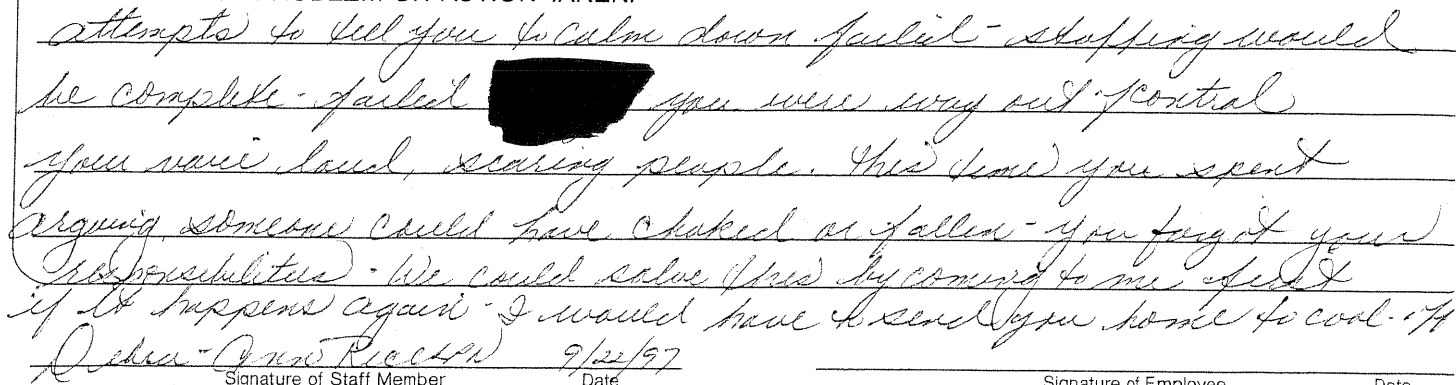 attempts to tell you to calm down failed - staffing would
be complete - failed you were way out of control
your voice loud, scaring people. This time you spent
arguing someone could have choked or fallen - you forgot your
responsibilities. We could solve this by coming to me first
if it happens again - I would have to send you home to cool-off
Debra-Ann 9/22/97
Signature of Staff Member Date Signature of Employee Date